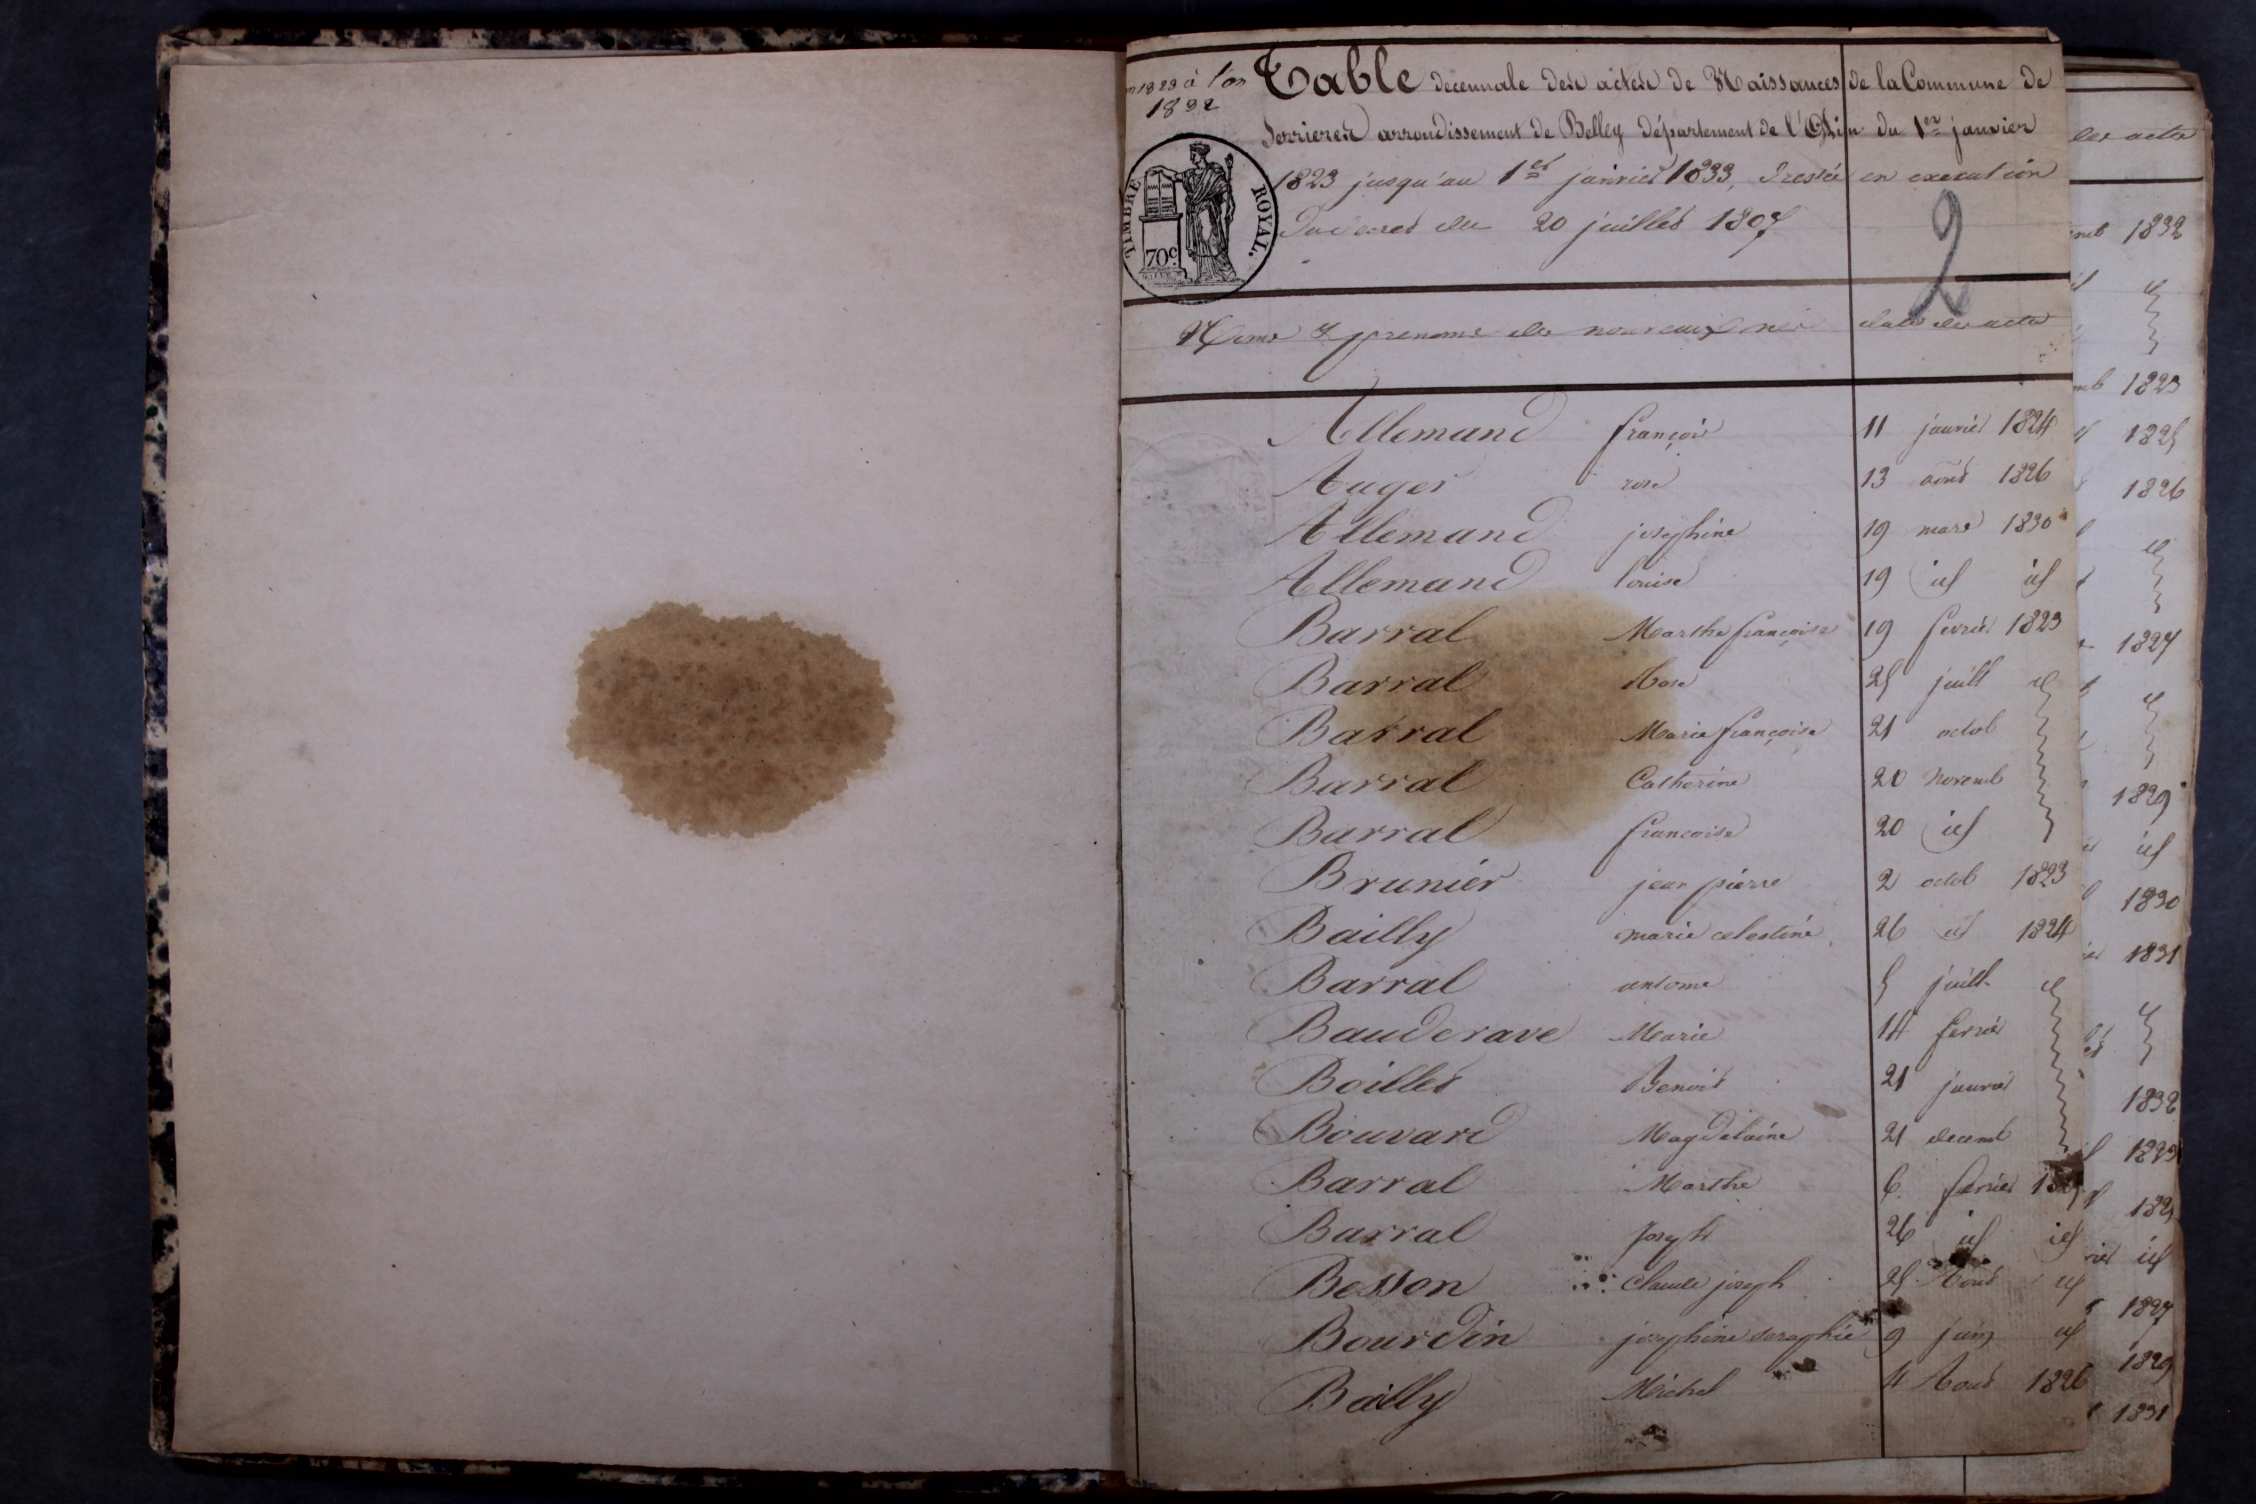 1823 à l'an
1832
Table decennale des actes de Naissances de la Commune de
Serrieres arrondissement de Belley département de l'Ain du 1er janvier
1823 jusqu'au 1er janvier 1833, Dressée en execution
Du decret du 20 juillet 1807
TIMBRE ROYAL.
70c
2
Noms & prenoms des nouveaux nés date des actes
Allemand françois 11 janvier 1824
Auger rose 13 aout 1826
Allemand josephine 19 mars 1830
Allemand louise 19 id id
Barral Marthe françoise 19 fevrier 1823
Barral Rose 25 juill id
Barral Marie françoise 21 octob
Barral Catherine 20 Novemb
Barral francoise 20 id
Brunier jean pierre 2 octob 1823
Bailly marie celestine 26 id 1824
Barral antoine 5 juill id
Bauderave Marie 14 fevrier
Boillet Benoit 21 janvier
Bouvard Magdelaine 21 decemb
Barral Marthe 6 fevrier
Barral Joseph 26 id id
Besson Claude joseph 25 Aout id
Bourdin josephine seraphie 9 juin id
Bailly Michel 11 Aout 1826
des actes
1832
id
1823
1825
1826
id
1827
id
1829
id
1830
1831
id
1832
1823
1825
id
1827
1829
1831